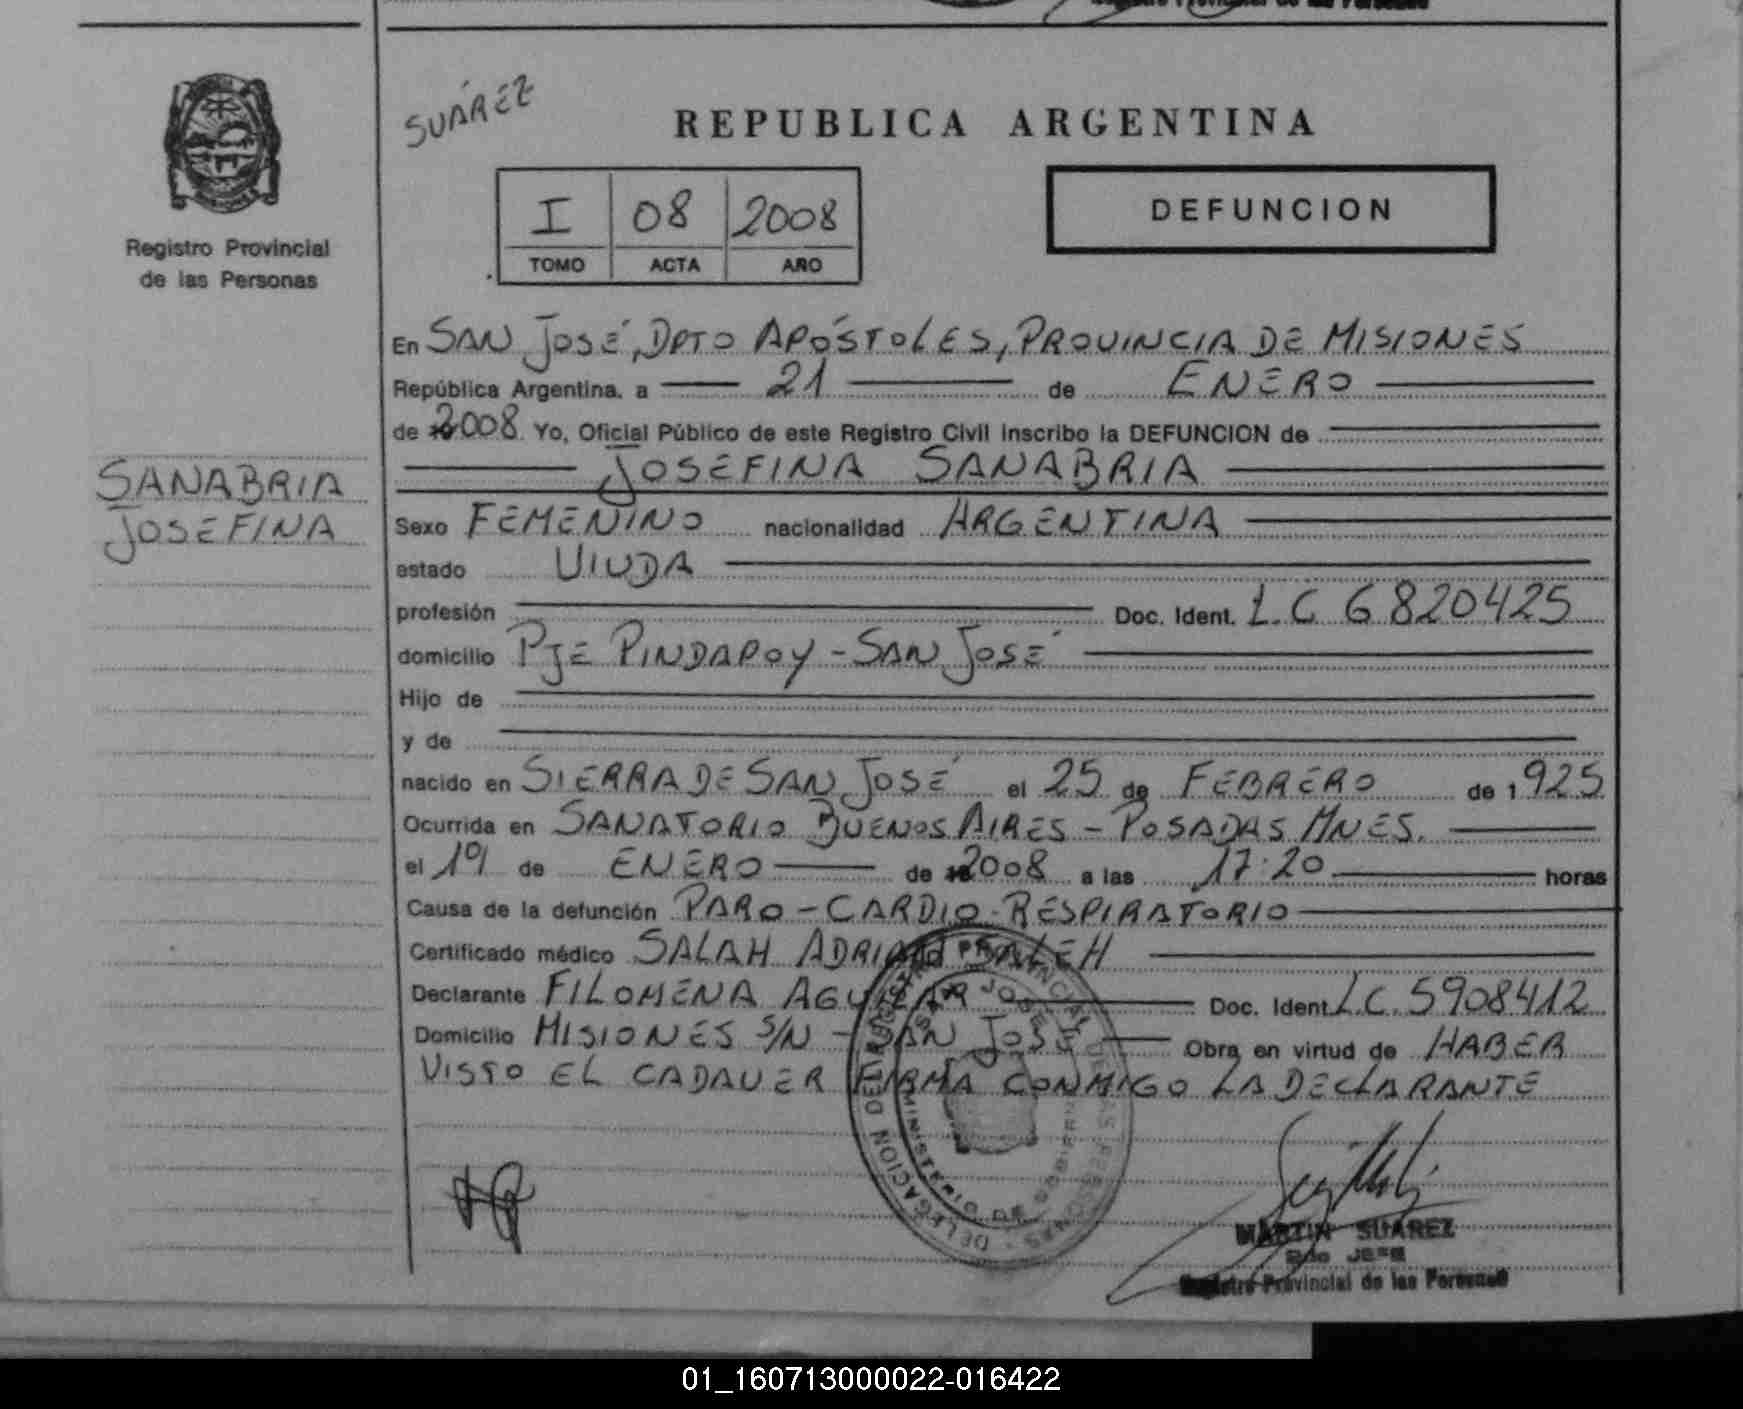 Registro Provincial de las Personas
SUÁREZ
REPUBLICA ARGENTINA
I 08 2008
TOMO ACTA AÑO
DEFUNCION
Registro Provincial
de las Personas
En SAN JOSÉ, DPTO APÓSTOLES, PROVINCIA DE MISIONES
República Argentina, a 21 de ENERO
de 2008 Yo, Oficial Público de este Registro Civil inscribo la DEFUNCION de
JOSEFINA SANABRIA
SANABRIA
JOSEFINA
Sexo FEMENINO nacionalidad ARGENTINA
estado VIUDA
profesión Doc. Ident. L.C 6820425
domicilio PJE PINDAPOY - SAN JOSÉ
Hijo de
y de
nacido en SIERRA DE SAN JOSÉ el 25 de FEBRERO de 1925
Ocurrida en SANATORIO BUENOS AIRES - POSADAS MNES.
el 19 de ENERO de 2008 a las 17:20 horas
Causa de la defunción PARO - CARDIO - RESPIRATORIO
Certificado médico SALAH ADRIAN SALEH
Declarante FILOMENA AGUILAR Doc. Ident. L.C. 5908412
Domicilio MISIONES S/N - SAN JOSÉ Obra en virtud de HABER
VISTO EL CADAVER FIRMA CONMIGO LA DECLARANTE
DELEGACION DEL REGISTRO PROVINCIAL DE LAS PERSONAS
SAN JOSE
MINISTERIO DE GOBIERNO
MARTIN SUAREZ
2do JEFE
Registro Provincial de las Personas
01_160713000022-016422